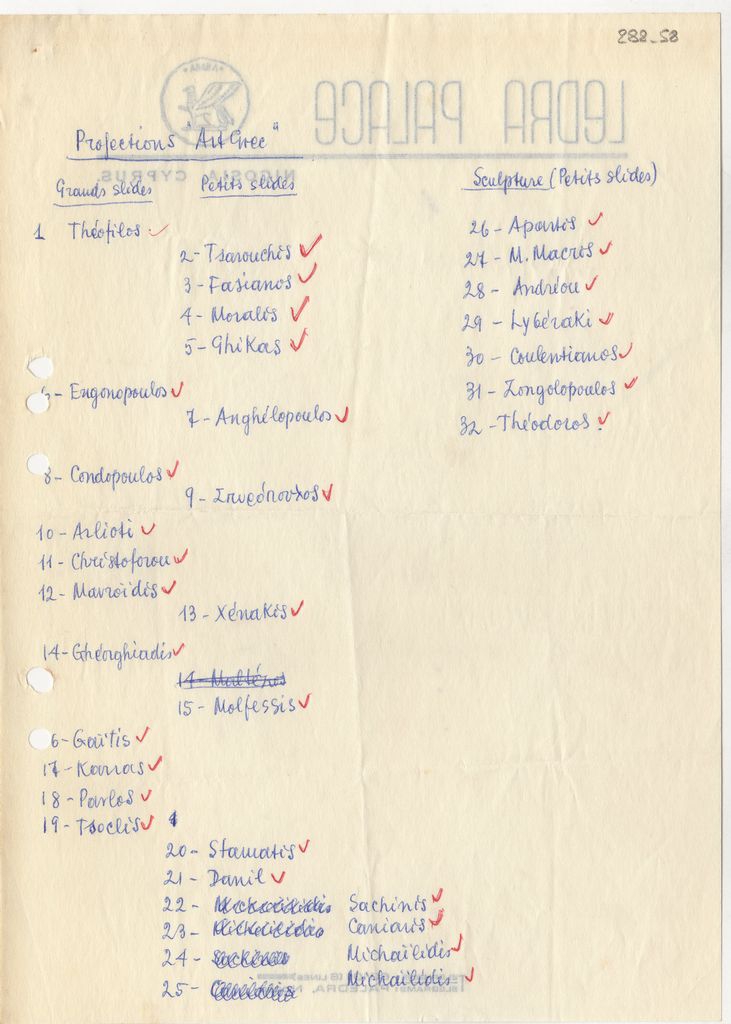 288_58
LEDRA PALACE
NICOSIA CYPRUS.
Projections "Art Grec"
Grands slides
Petits slides
1 Théofilos ✓
2- Tsarouchis ✓
3- Fasianos ✓
4- Moralis ✓
5- Ghikas ✓
6- Engonopoulos ✓
7- Anghélopoulos ✓
8- Condopoulos ✓
9- Σπυρόπουλος ✓
10- Arlioti ✓
11- Christoforou ✓
12- Mavroïdis ✓
13- Xénakis ✓
14- Ghéorghiadis ✓
14- Maltézos
15- Molfessis ✓
16- Gaïtis ✓
17- Karras ✓
18- Pavlos ✓
19- Tsoclis ✓
20- Stamatis ✓
21- Danil ✓
22- Michaïlidis Sachinis ✓
23- Michaïlidis Caniaris ✓
24- Sachinis Michaïlidis ✓
25- Caniaris Michaïlidis ✓
Sculpture (Petits slides)
26- Apartis ✓
27- M. Macris ✓
28- Andréou ✓
29- Lybéraki ✓
30- Coulentianos ✓
31- Zongolopoulos ✓
32- Théodoros ✓